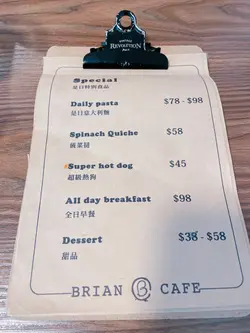 REVOLUTION
Special
是日特別食品
Daily pasta $78 - $98
是日意大利麵
Spinach Quiche $58
Super hot dog $45
超級熱狗
All day breakfast $98
全日早餐
Dessert $38 - $58
甜品
BRIAN B CAFE